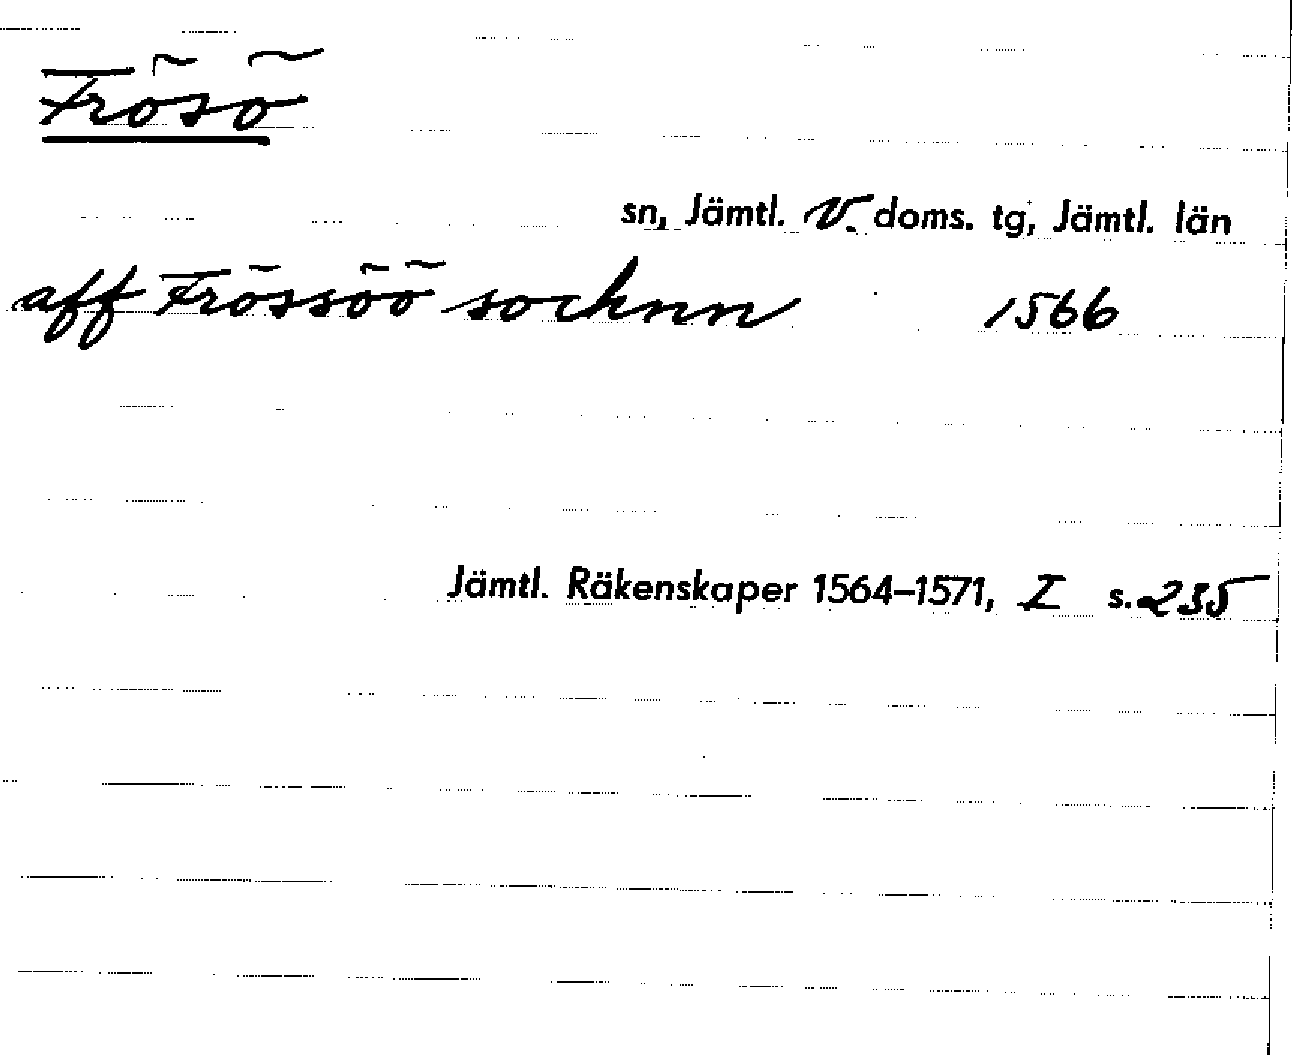 Frösö
sn, Jämtl. V. doms. tg, Jämtl. län
aff Frössöö socknn 1566
Jämtl. Räkenskaper 1564–1571, I s. 235